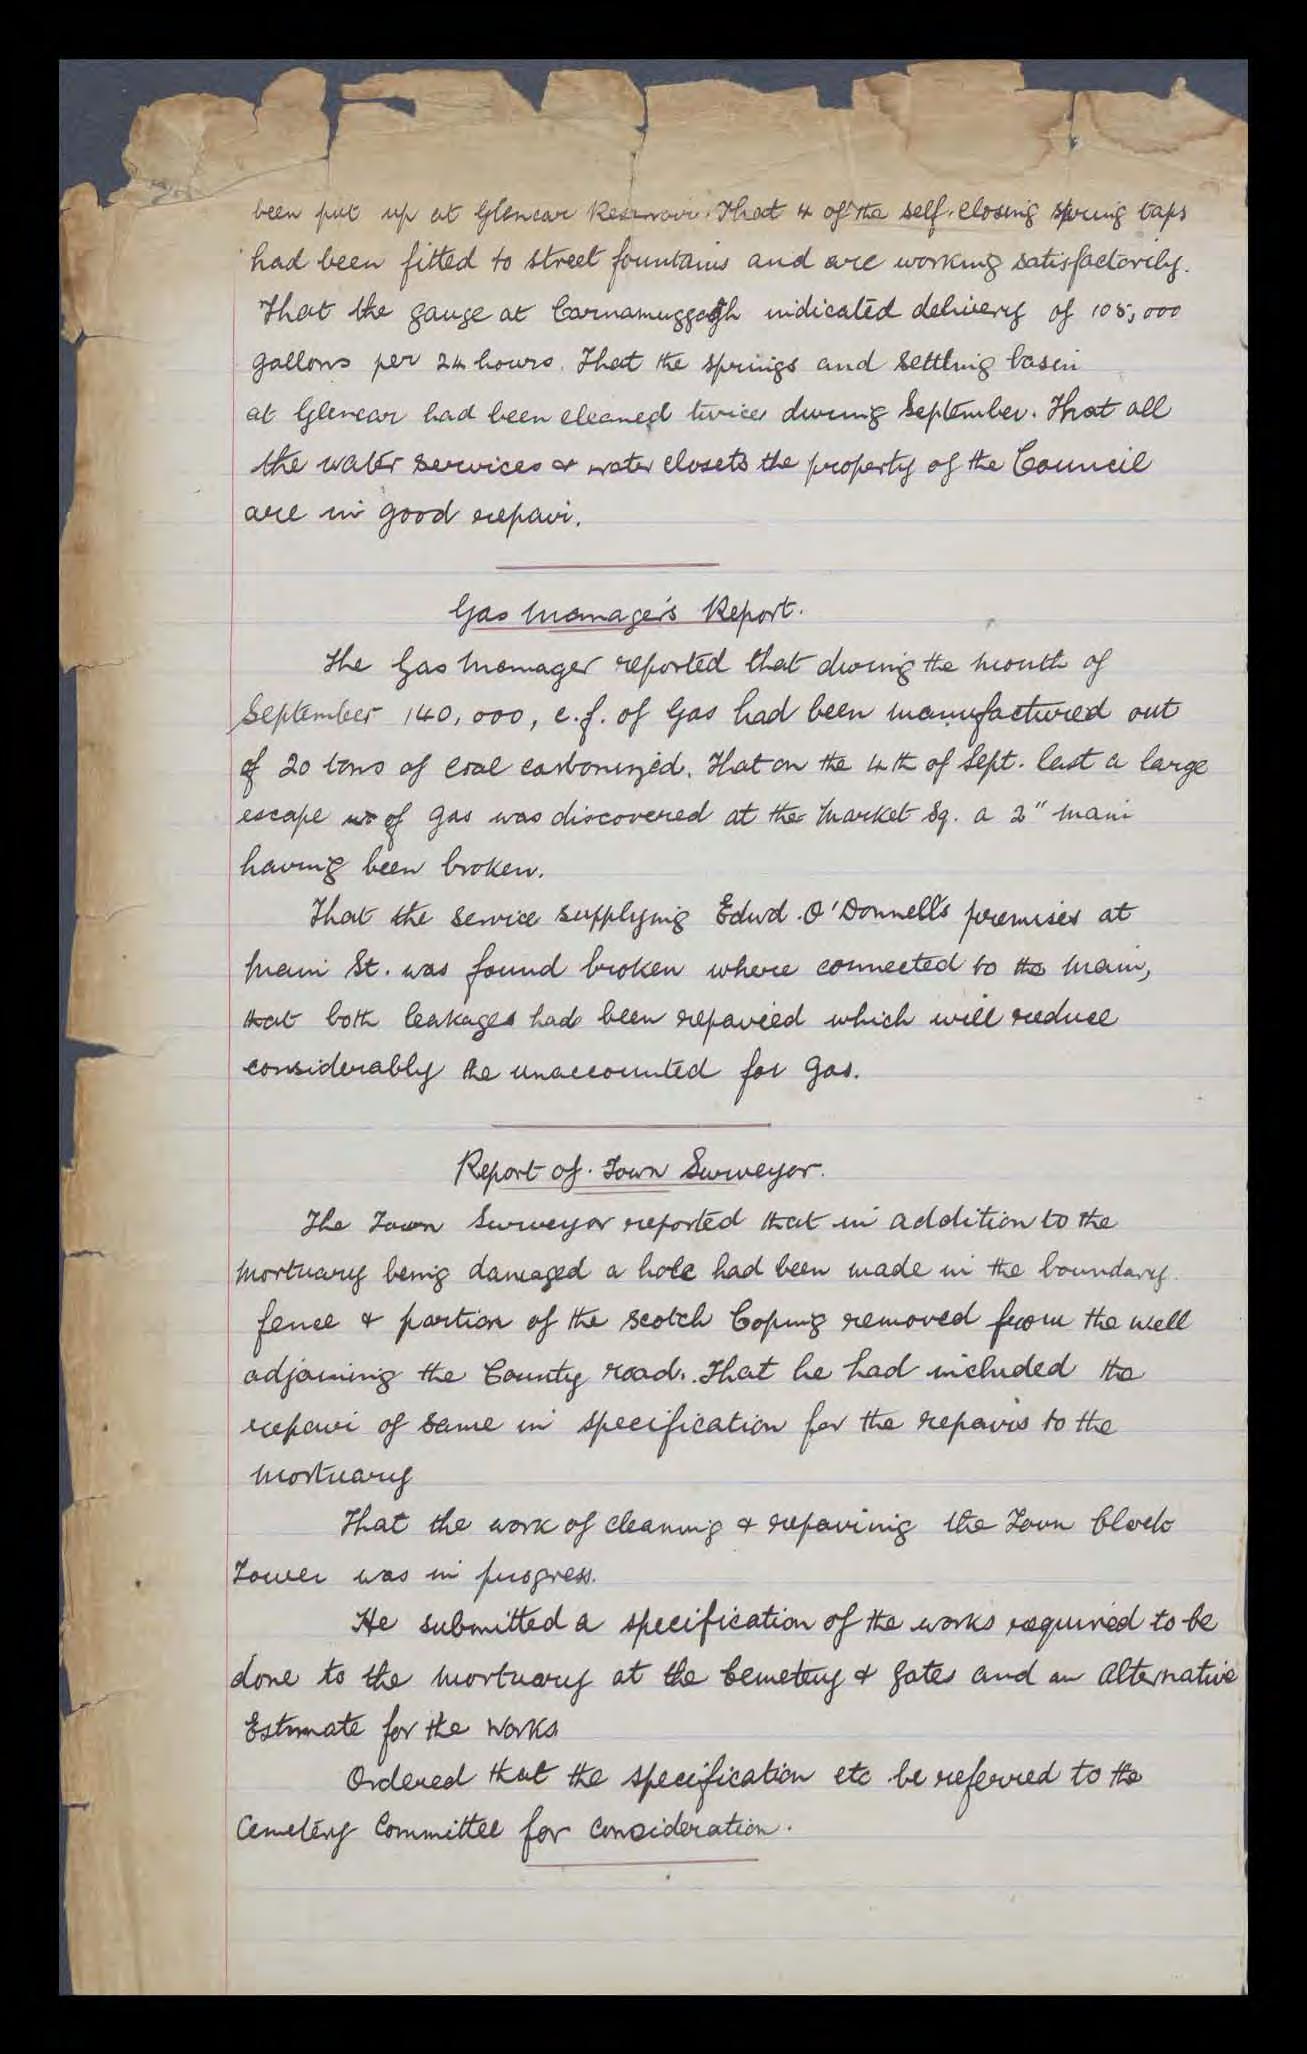 been put up at Glencar Reservoir. That 4 of the self-closing spring taps
had been fitted to street fountains and are working satisfactorily.
That the gauge at Carnamuggagh indicated delivery of 105,000
gallons per 24 hours. That the springs and settling basin
at Glencar had been cleaned twice during September. That all
the water services & water closets the property of the Council
are in good repair.
Gas Manager's Report.
The Gas Manager reported that during the month of
September 140,000, c.f. of Gas had been manufactured out
of 20 tons of coal carbonized. That on the 4th of Sept. last a large
escape of gas was discovered at the Market Sq. a 2" main
having been broken.
That the service supplying Edwd. O'Donnell's premises at
Main St. was found broken where connected to the main,
that both leakages had been repaired which will reduce
considerably the unaccounted for gas.
Report of Town Surveyor.
The Town Surveyor reported that in addition to the
mortuary being damaged a hole had been made in the boundary
fence & portion of the Scotch Coping removed from the well
adjoining the County road. That he had included the
repair of same in specification for the repairs to the
mortuary
That the work of cleaning & repairing the Town Clock
Tower was in progress.
He submitted a specification of the works required to be
done to the mortuary at the Cemetery & gates and an alternative
Estimate for the works
Ordered that the specification etc be referred to the
Cemetery Committee for consideration.